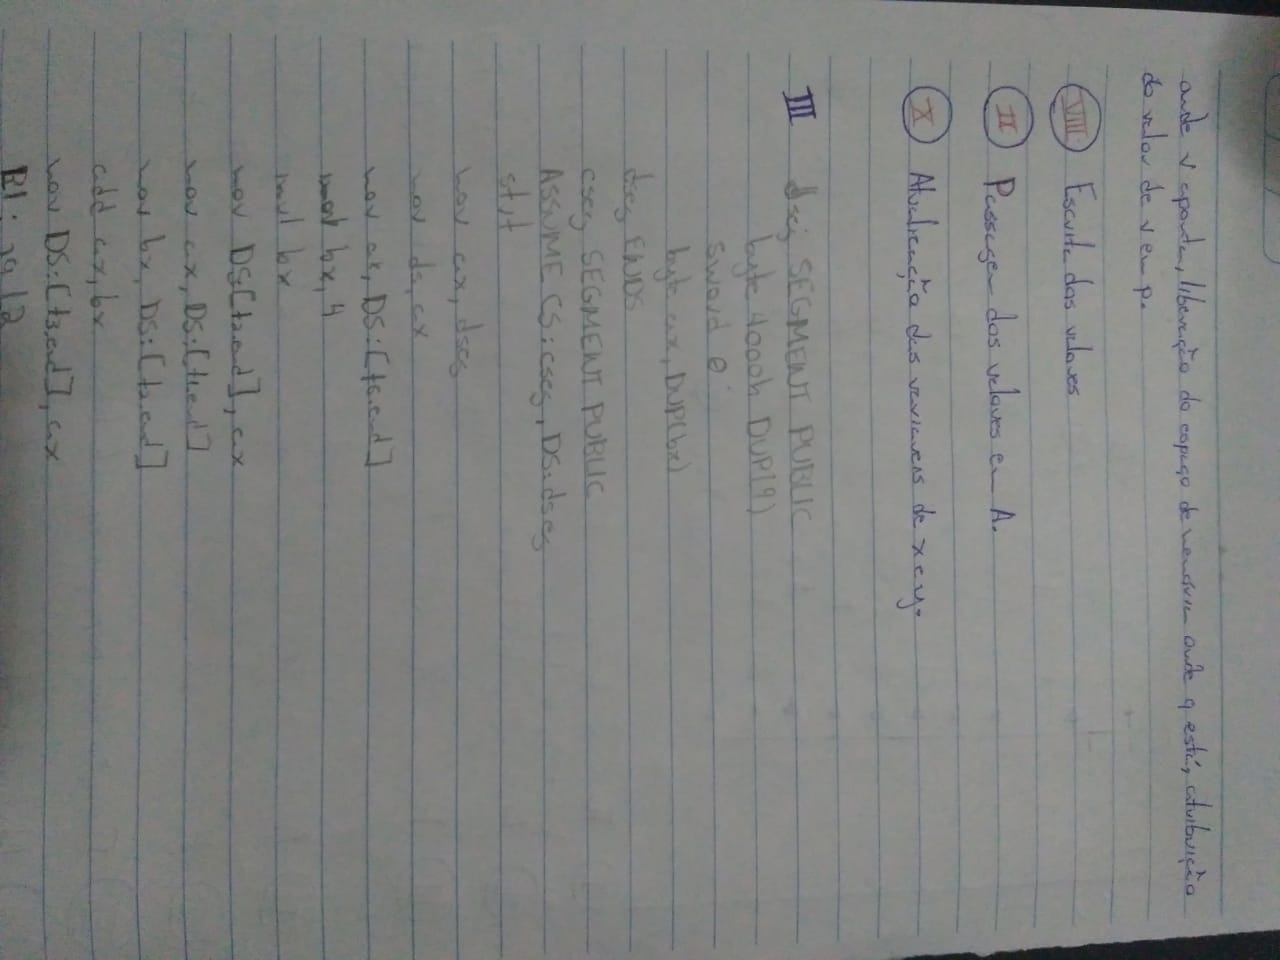 onde v aponta, liberação do espaço de memória onde q está, atribuição
do valor de v em p.
VIII Escrita dos valores
II Passagem dos valores em A.
X Atualização das variaveis de x e y.
III dseg SEGMENT PUBLIC
byte 4000h DUP(?)
sword 0
byte ax, DUP(bx)
dseg ENDS
cseg SEGMENT PUBLIC
ASSUME CS:cseg, DS:dseg
mov ax, dseg
mov ds, ax
mov ax, DS:[t6.end]
bx, 4
mul bx
mov DS:[t2.end], ax
mov ax, DS:[t1.end]
mov bx, DS:[t2.end]
add ax, bx
mov DS:[t3.end], ax